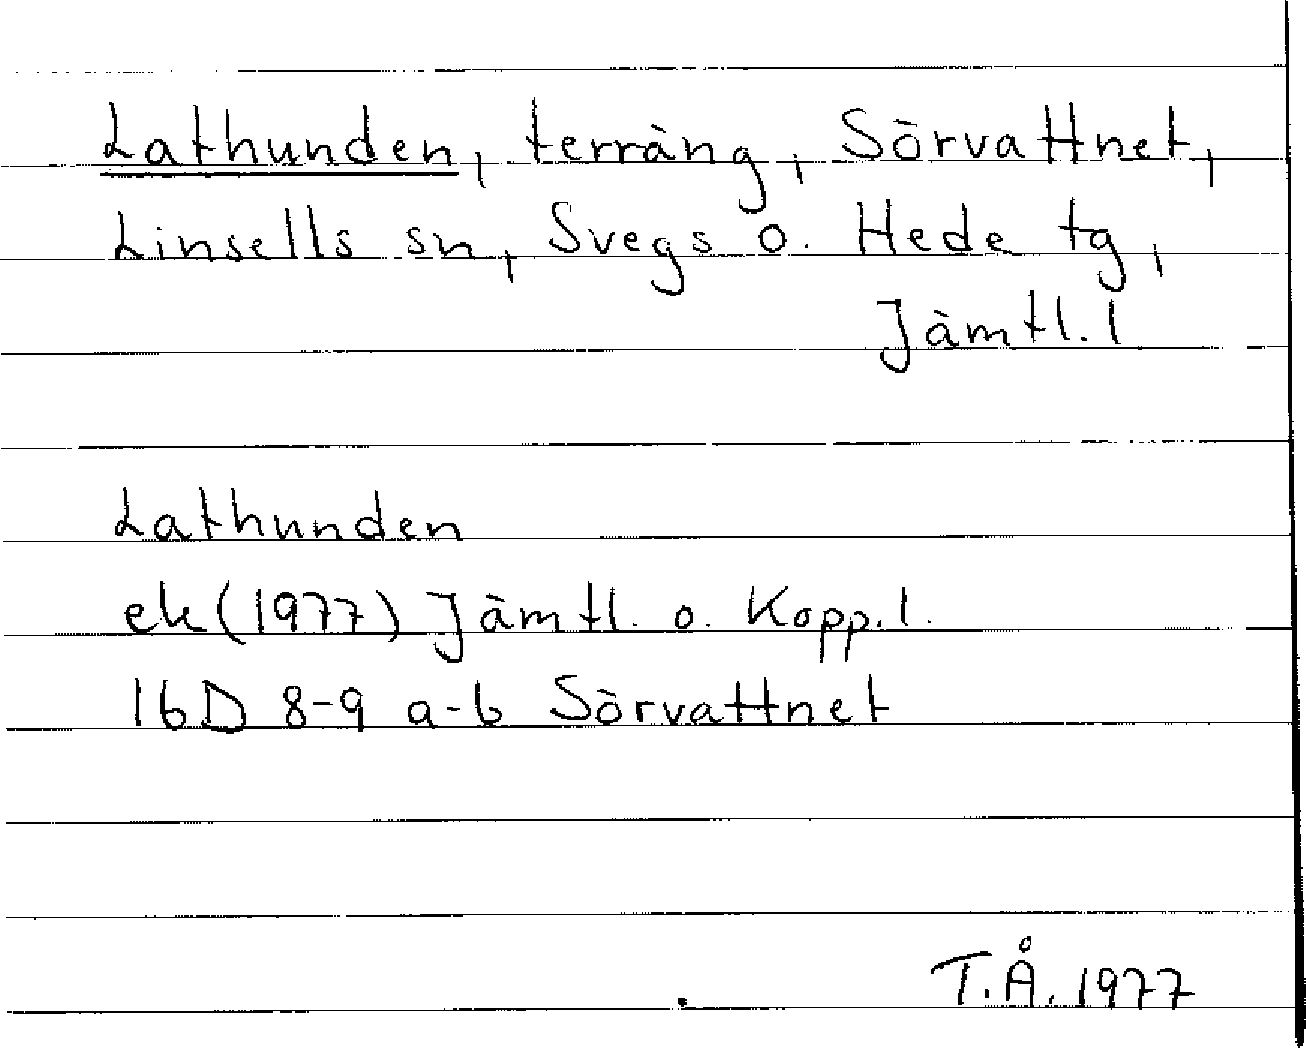 Lathunden, terräng, Sörvattnet,
Linsells sn, Svegs o. Hede tg,
Jämtl. l
Lathunden
ek (1977) Jämtl. o. Kopp. l.
16D 8-9 a-b Sörvattnet
T.Å. 1977